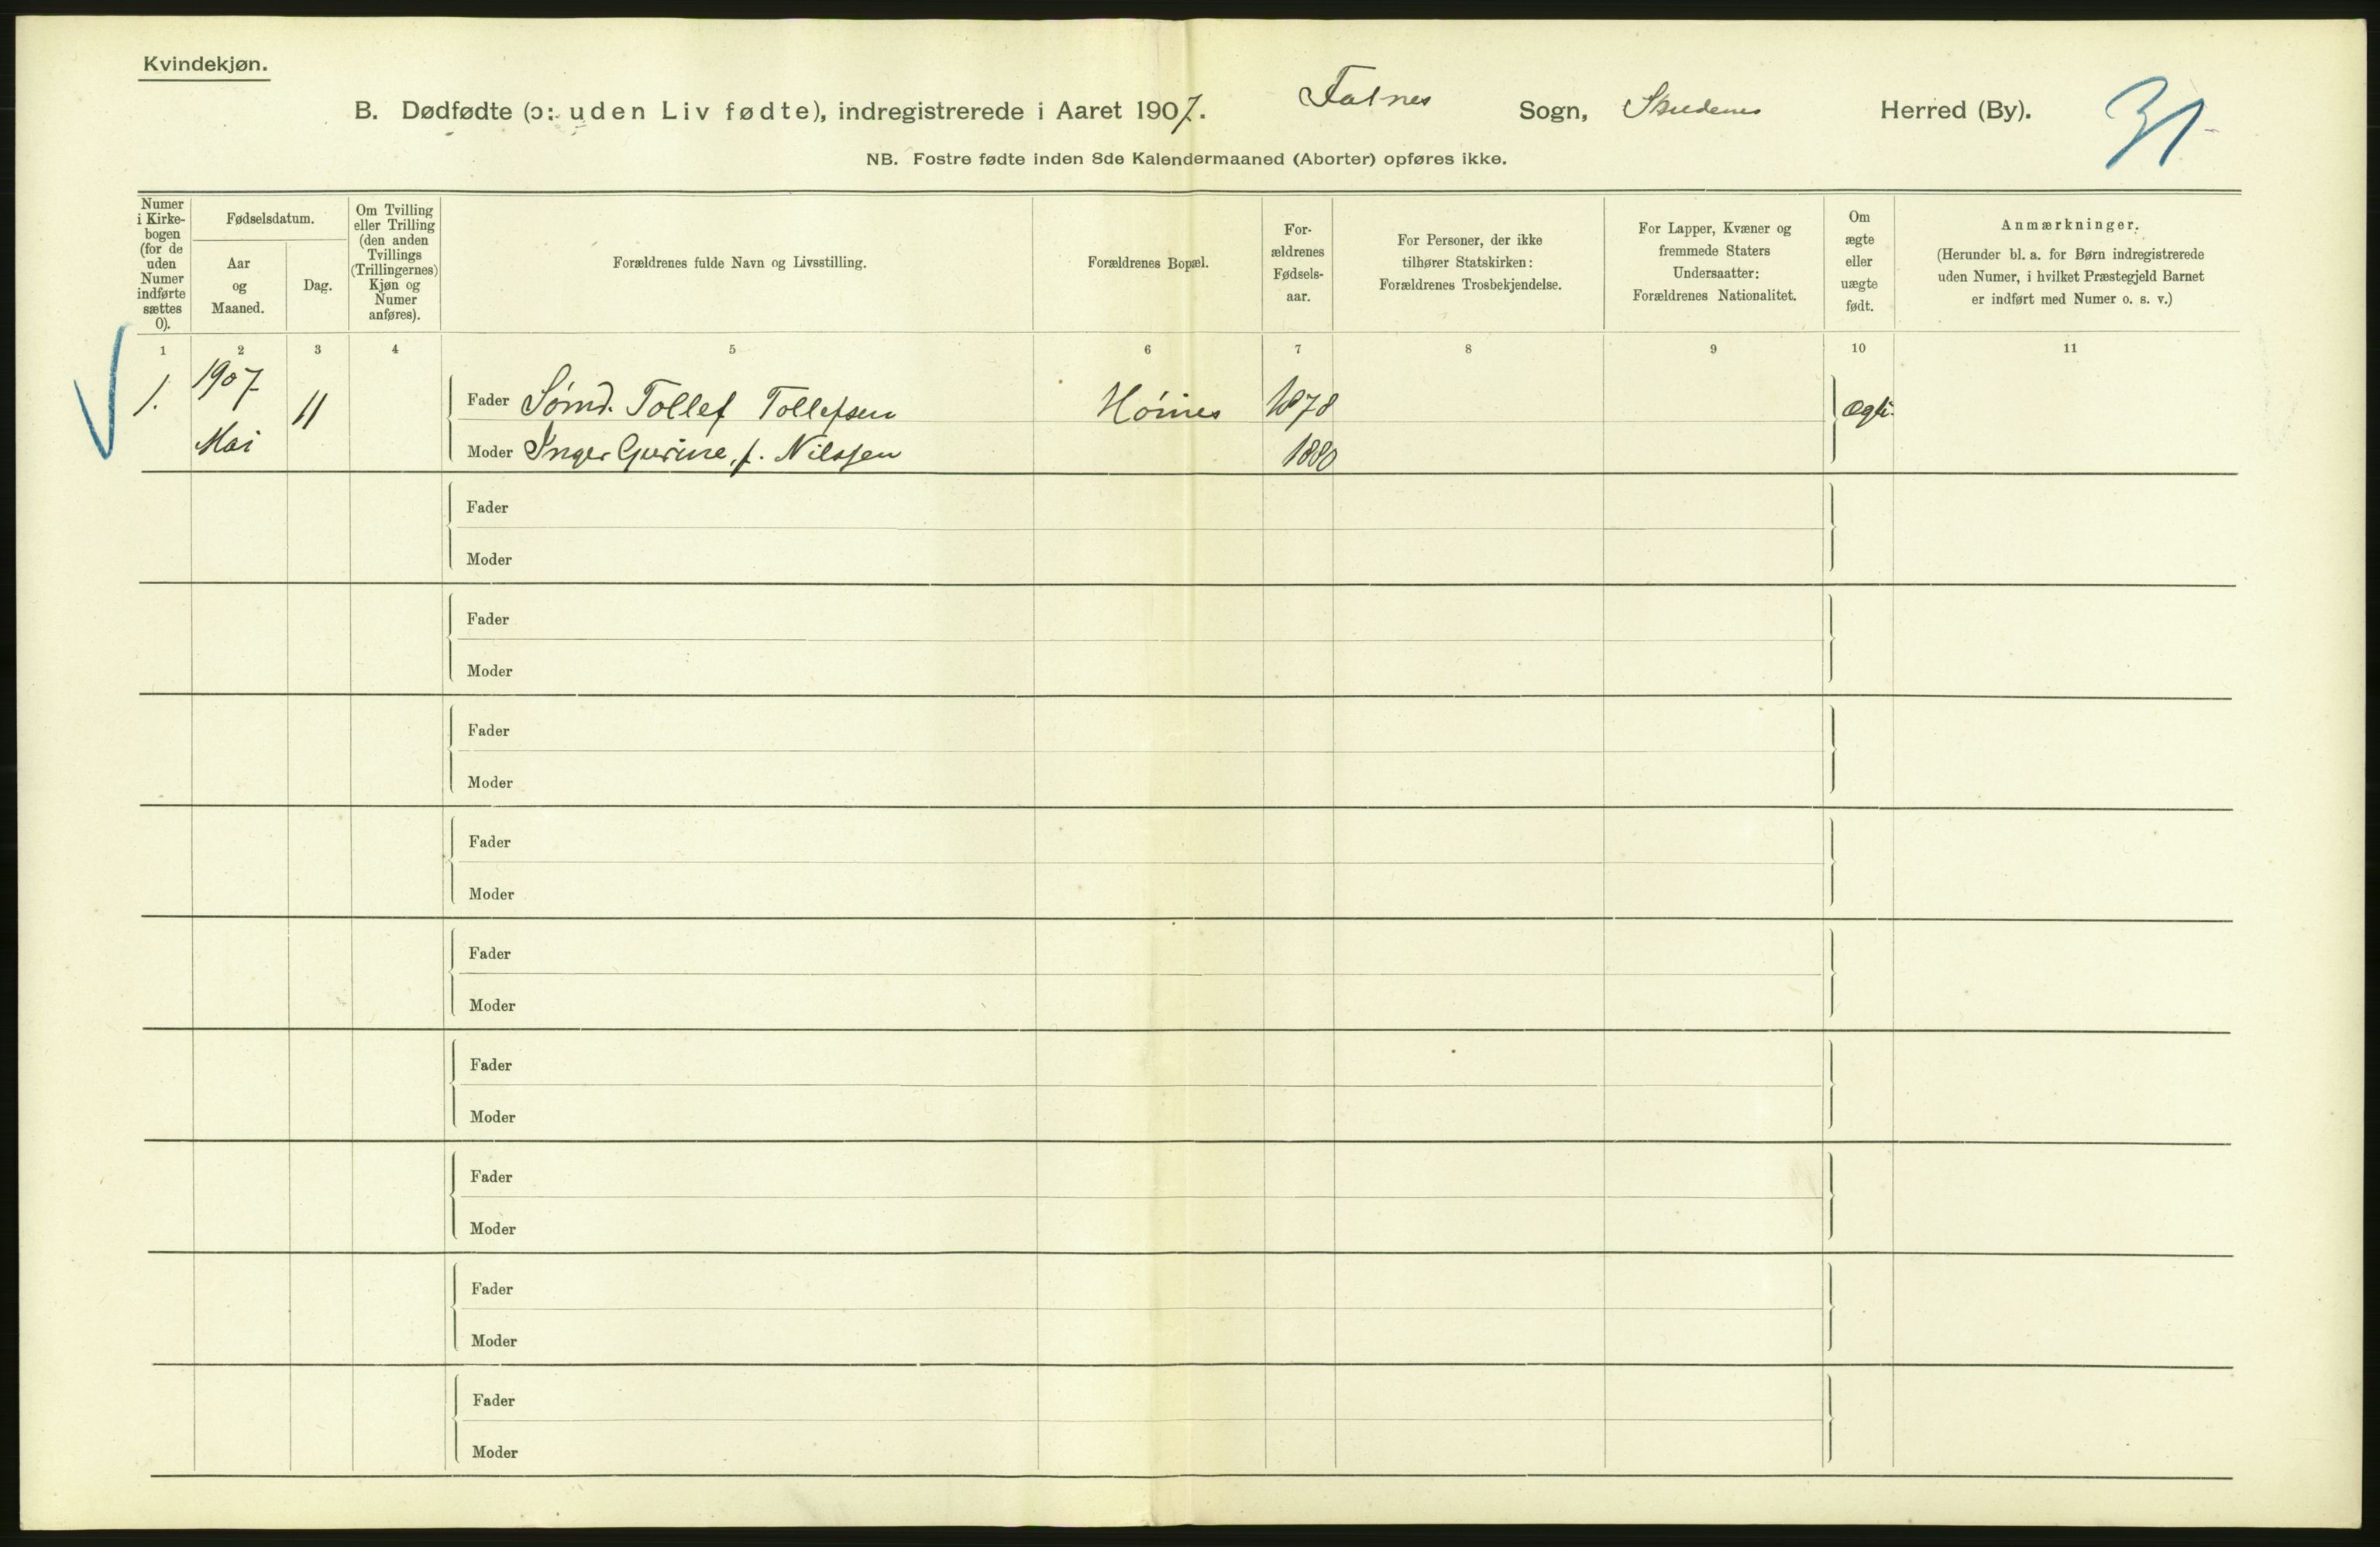 Kvindekjøn.
B. Dødfødte (ɔ: uden Liv fødte), indregistrerede i Aaret 1907. Falnes Sogn, Skudenes Herred (By). 31
NB. Fostre fødte inden 8de Kalendermaaned (Aborter) opføres ikke.
Numer i Kirke- bogen (for de uden Numer indførte sættes 0).
Fødselsdatum.
Aar og Maaned.
Dag.
Om Tvilling eller Trilling (den anden Tvillings (Trillingernes) Kjøn og Numer anføres).
Forældrenes fulde Navn og Livsstilling.
Forældrenes Bopæl.
For- ældrenes Fødsels- aar.
For Personer, der ikke tilhører Statskirken: Forældrenes Trosbekjendelse.
For Lapper, Kvæner og fremmede Staters Undersaatter: Forældrenes Nationalitet.
Om ægte eller uægte født.
Anmærkninger.
(Herunder bl. a. for Børn indregistrerede uden Numer, i hvilket Præstegjeld Barnet er indført med Numer o. s. v.)
1 2 3 4 5 6 7 8 9 10 11
1. 1907 11 Fader Sømd. Tollef Tollefsen Høines 1878 Ægte
Mai Moder Inger Gurine, f. Nilssen 1880
Fader
Moder
Fader
Moder
Fader
Moder
Fader
Moder
Fader
Moder
Fader
Moder
Fader
Moder
Fader
Moder
Fader
Moder